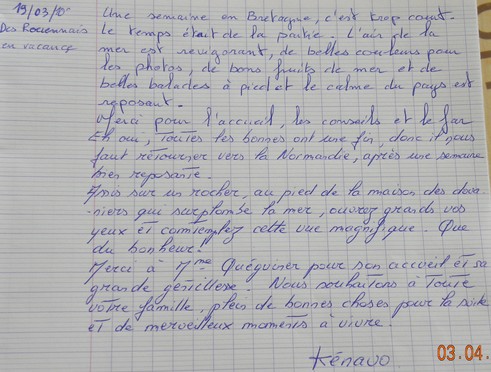 19/03/10
Des Rouennais
en vacance
Une semaine en Bretagne, c'est trop court.
Le temps était de la partie. L'air de la
mer est revigorant, de belles couleurs pour
les photos, de bons fruits de mer et de
belles balades à pied et le calme du pays est
reposant.
Merci pour l'accueil, les conseils et le far
Eh oui, toutes les bonnes ont une fin, donc il nous
faut retourner vers la Normandie, après une semaine
bien reposante.
Assis sur un rocher, au pied de la maison des doua-
-niers qui surplombe la mer, ouvrez grands vos
yeux et contemplez cette vue magnifique. Que
du bonheur!
Merci à Mme Quéguiner pour son accueil et sa
grande gentillesse. Nous souhaitons à toute
votre famille, plein de bonnes choses pour la suite
et de merveilleux moments à vivre.
Kénavo
03.04.